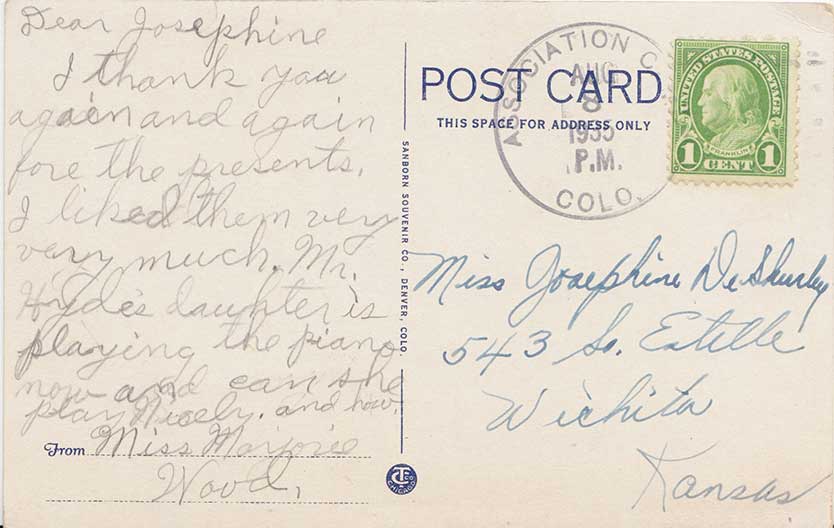 Dear Josephine
I thank you
again and again
fore the presents.
I liked them very
very much. Mr.
Hyde's daughter is
playing the piano
now and can she
play nicely. and how.
From Miss Marjorie
Wood.
SANBORN SOUVENIR CO., DENVER, COLO.
CT CO
CHICAGO
POST CARD
THIS SPACE FOR ADDRESS ONLY
ASSOCIATION C
AUG
8
1935
P.M.
COLO.
UNITED STATES POSTAGE
FRANKLIN
1 CENT 1
Miss Josephine DeShurley
543 So. Estelle
Wichita
Kansas